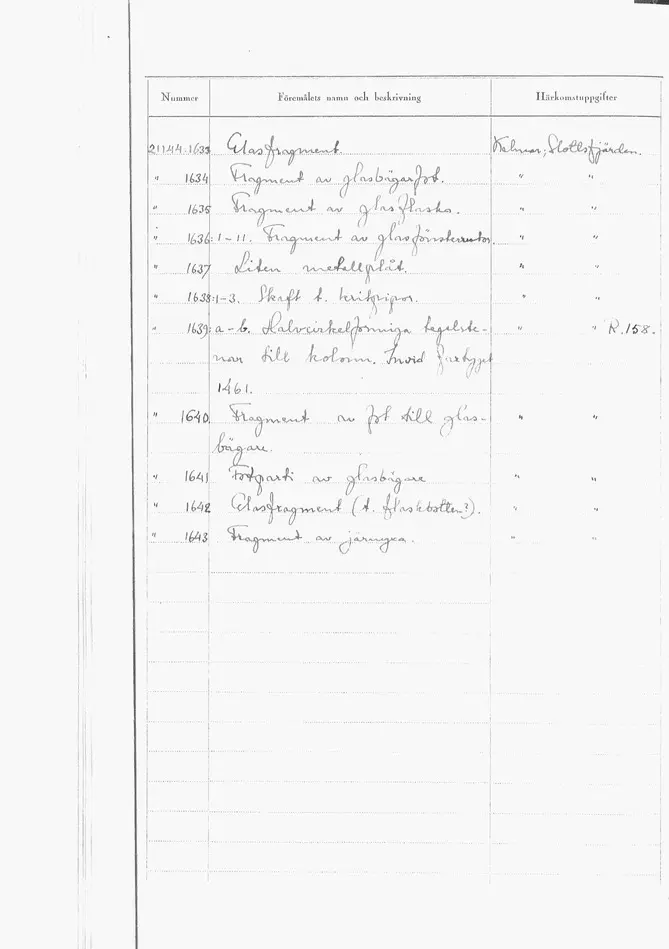 Nummer Föremålets namn och beskrivning Härkomstuppgifter
21144:1633 Glasfragment. Kalmar, Slottsfjärden.
" 1634 Fragment av glasbägarfot. " "
" 1635 Fragment av glasflaska. " "
" 1636:1-11. Fragment av glasfönsterrutor. " "
" 1637 Liten metallplåt. " "
" 1638:1-3. Skaft t. kritpipor. " "
" 1639:a-b. Halvcirkelformiga tegelste- " " R.158.
nar till kolonn. Invid fartyget
1461.
" 1640. Fragment av fot till glas- " "
bägare.
" 1641 Fotparti av glasbägare " "
" 1642 Glasfragment (t. flaskbotten?). " "
" 1643 Fragment av järnyxa. " "